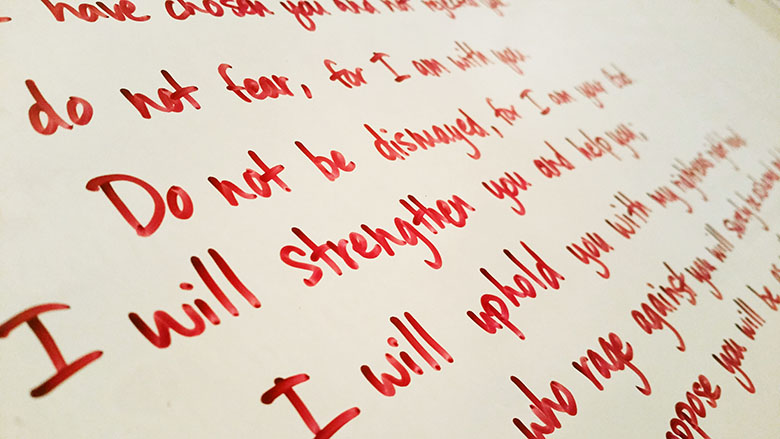 I have chosen you and not rejected you
do not fear, for I am with you.
Do not be dismayed, for I am your God
I will strengthen you and help you;
I will uphold you with my righteous right hand
who rage against you will surely be
oppose you will be